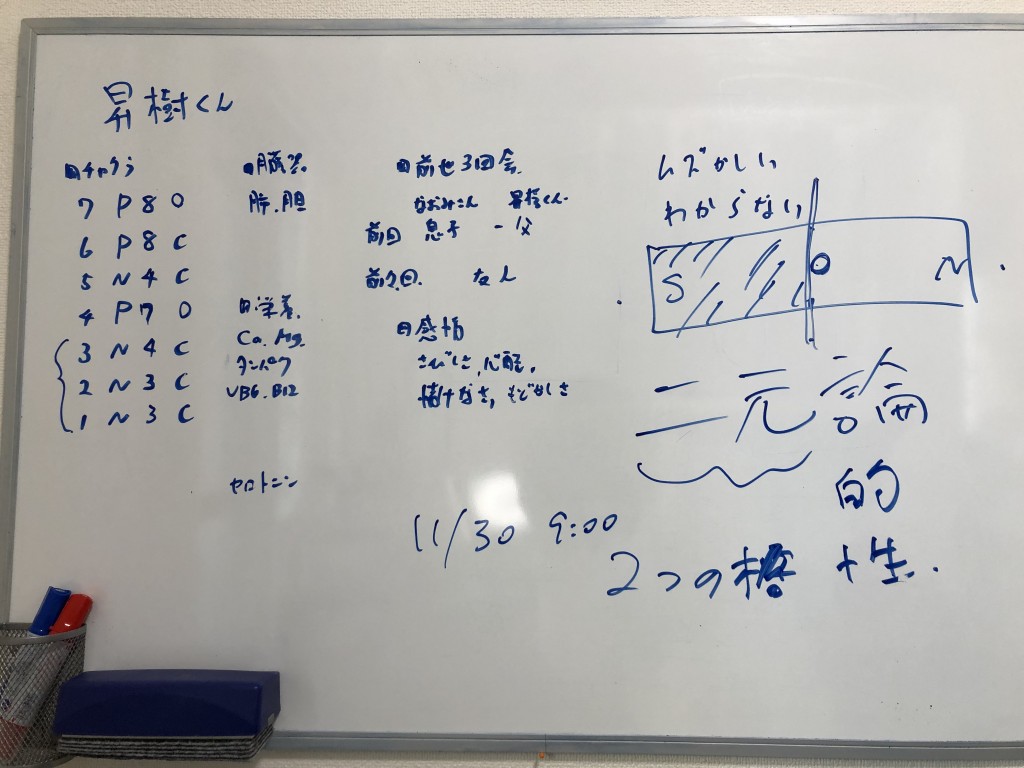 昇樹くん
■チャクラ
7 P 8 O
6 P 8 C
5 N 4 C
4 P 7 O
3 N 4 C
2 N 3 C
1 N 3 C
■臓器
肺、胆
■栄養
Ca. Mg
タンパク
VB6. B12
セロトニン
■前世3回会
なおみさん 昇樹くん
前回 息子 - 父
前々回 友人
■感情
さびしさ、心配、
情けなさ、もどかしさ
11/30 9:00
ムズかしい
わからない
S O N
二元論
的
2つの 性